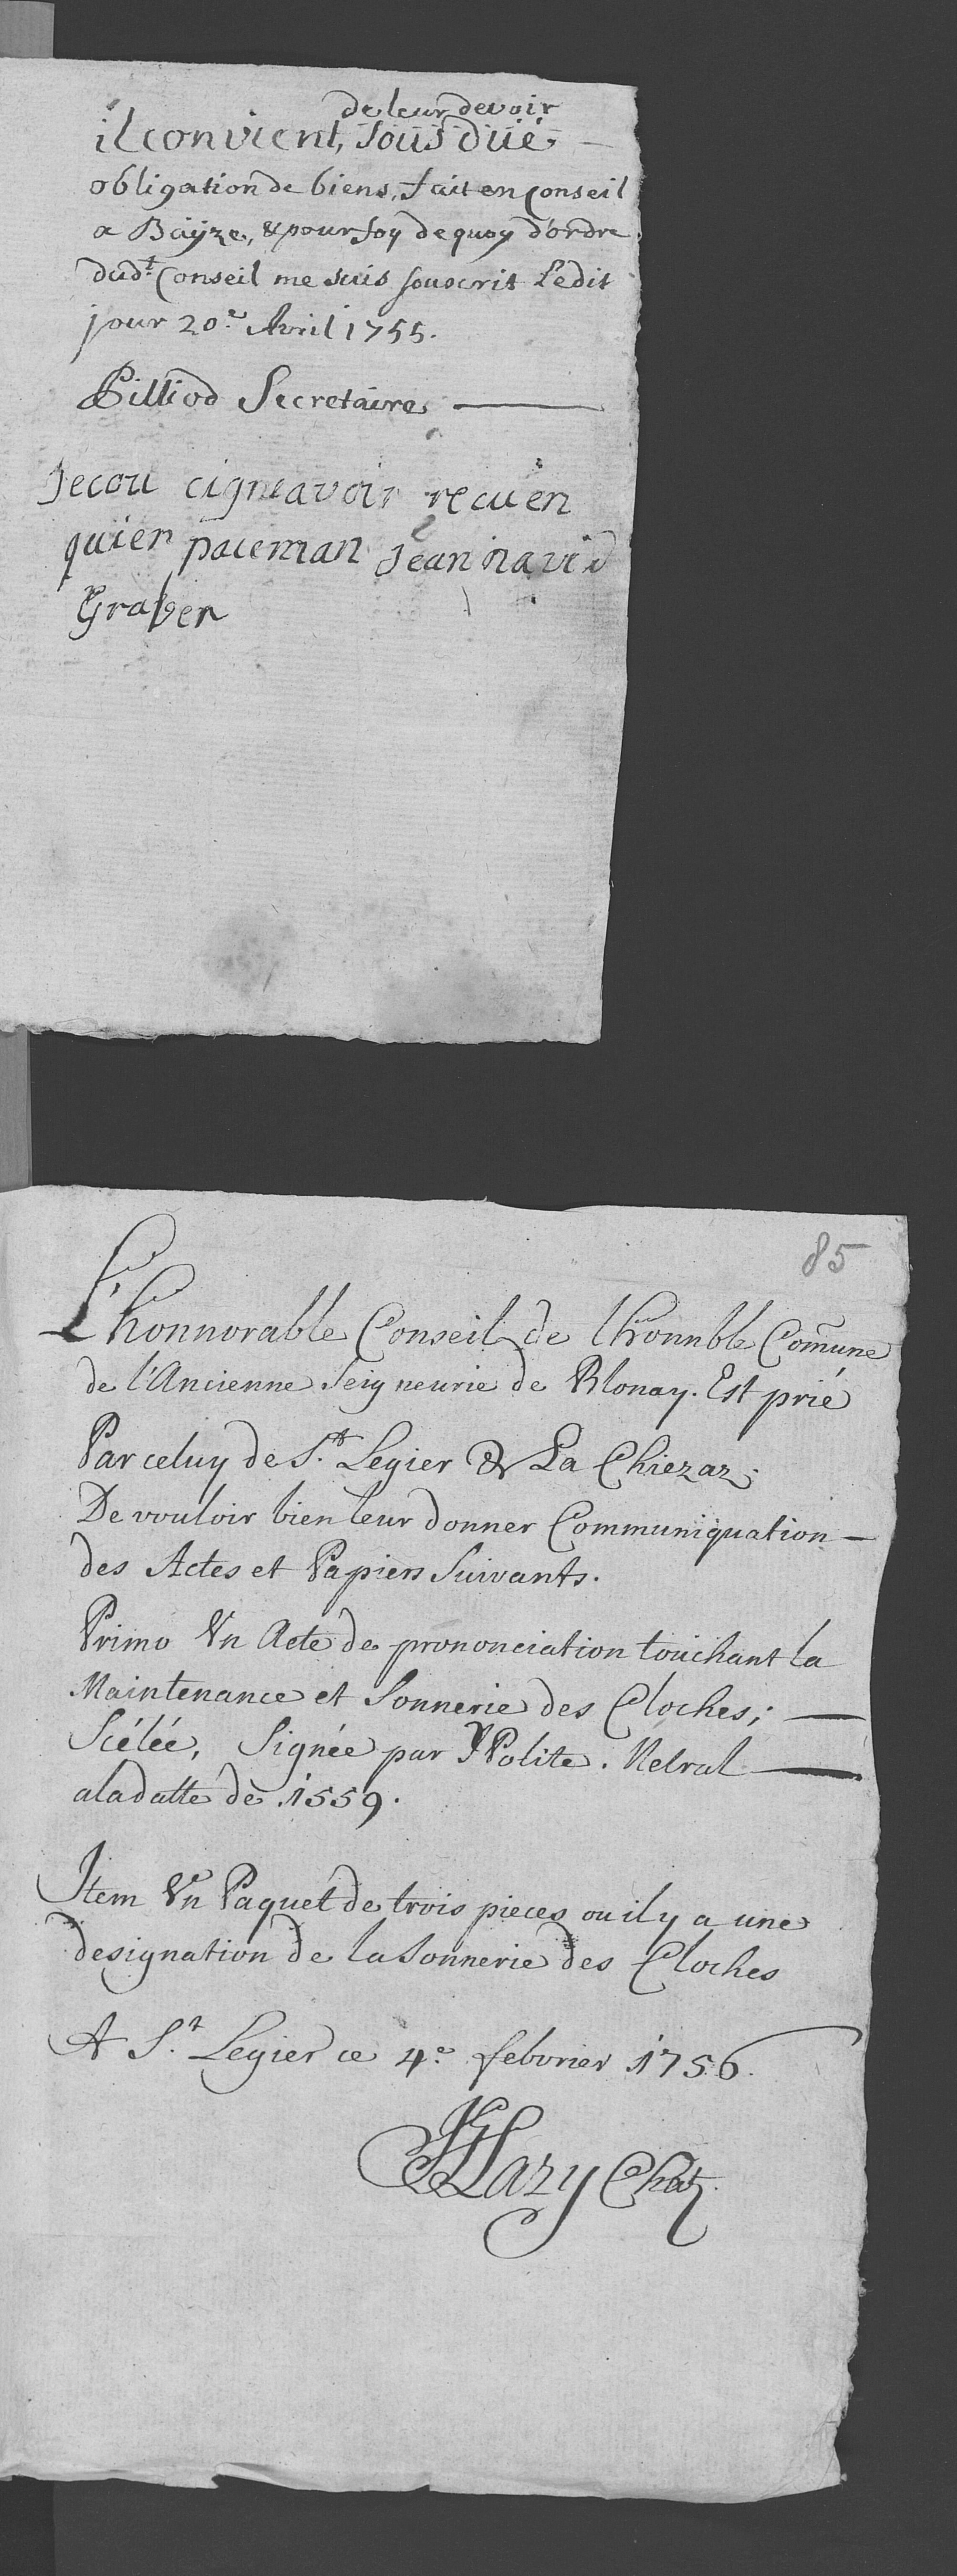 de leur devoir
il convient, sous düe
obligation de biens, fait en Conseil
a Baÿze, & pour foy de quoy d'ordre
dud.t Conseil me suis souscrit Ledit
jour 20.e Avril 1755.
Pilliod Secretaire
Jecou cigneavoir recu en
quier paceman Jean navid
Graber
85
L'honnorable Conseil de lhonnble Com̃une
de l'Ancienne Seigneurie de Blonay. Est prié
Par celuy de S.t Legier & La Chiezaz;
De vouloir bien leur donner Communiquation
des Actes et Papiers Suivants.
Primo Vn Acte de prononciation touchant la
Maintenance et Sonnerie des Cloches;
Scélée, Signée par YPolite. Retral
aladatte de .1559.
Item Vn Paquet de trois pieces ou il y a une
designation de la Sonnerie des Cloches
A S.t Legier ce 4.e febvrier 1756.